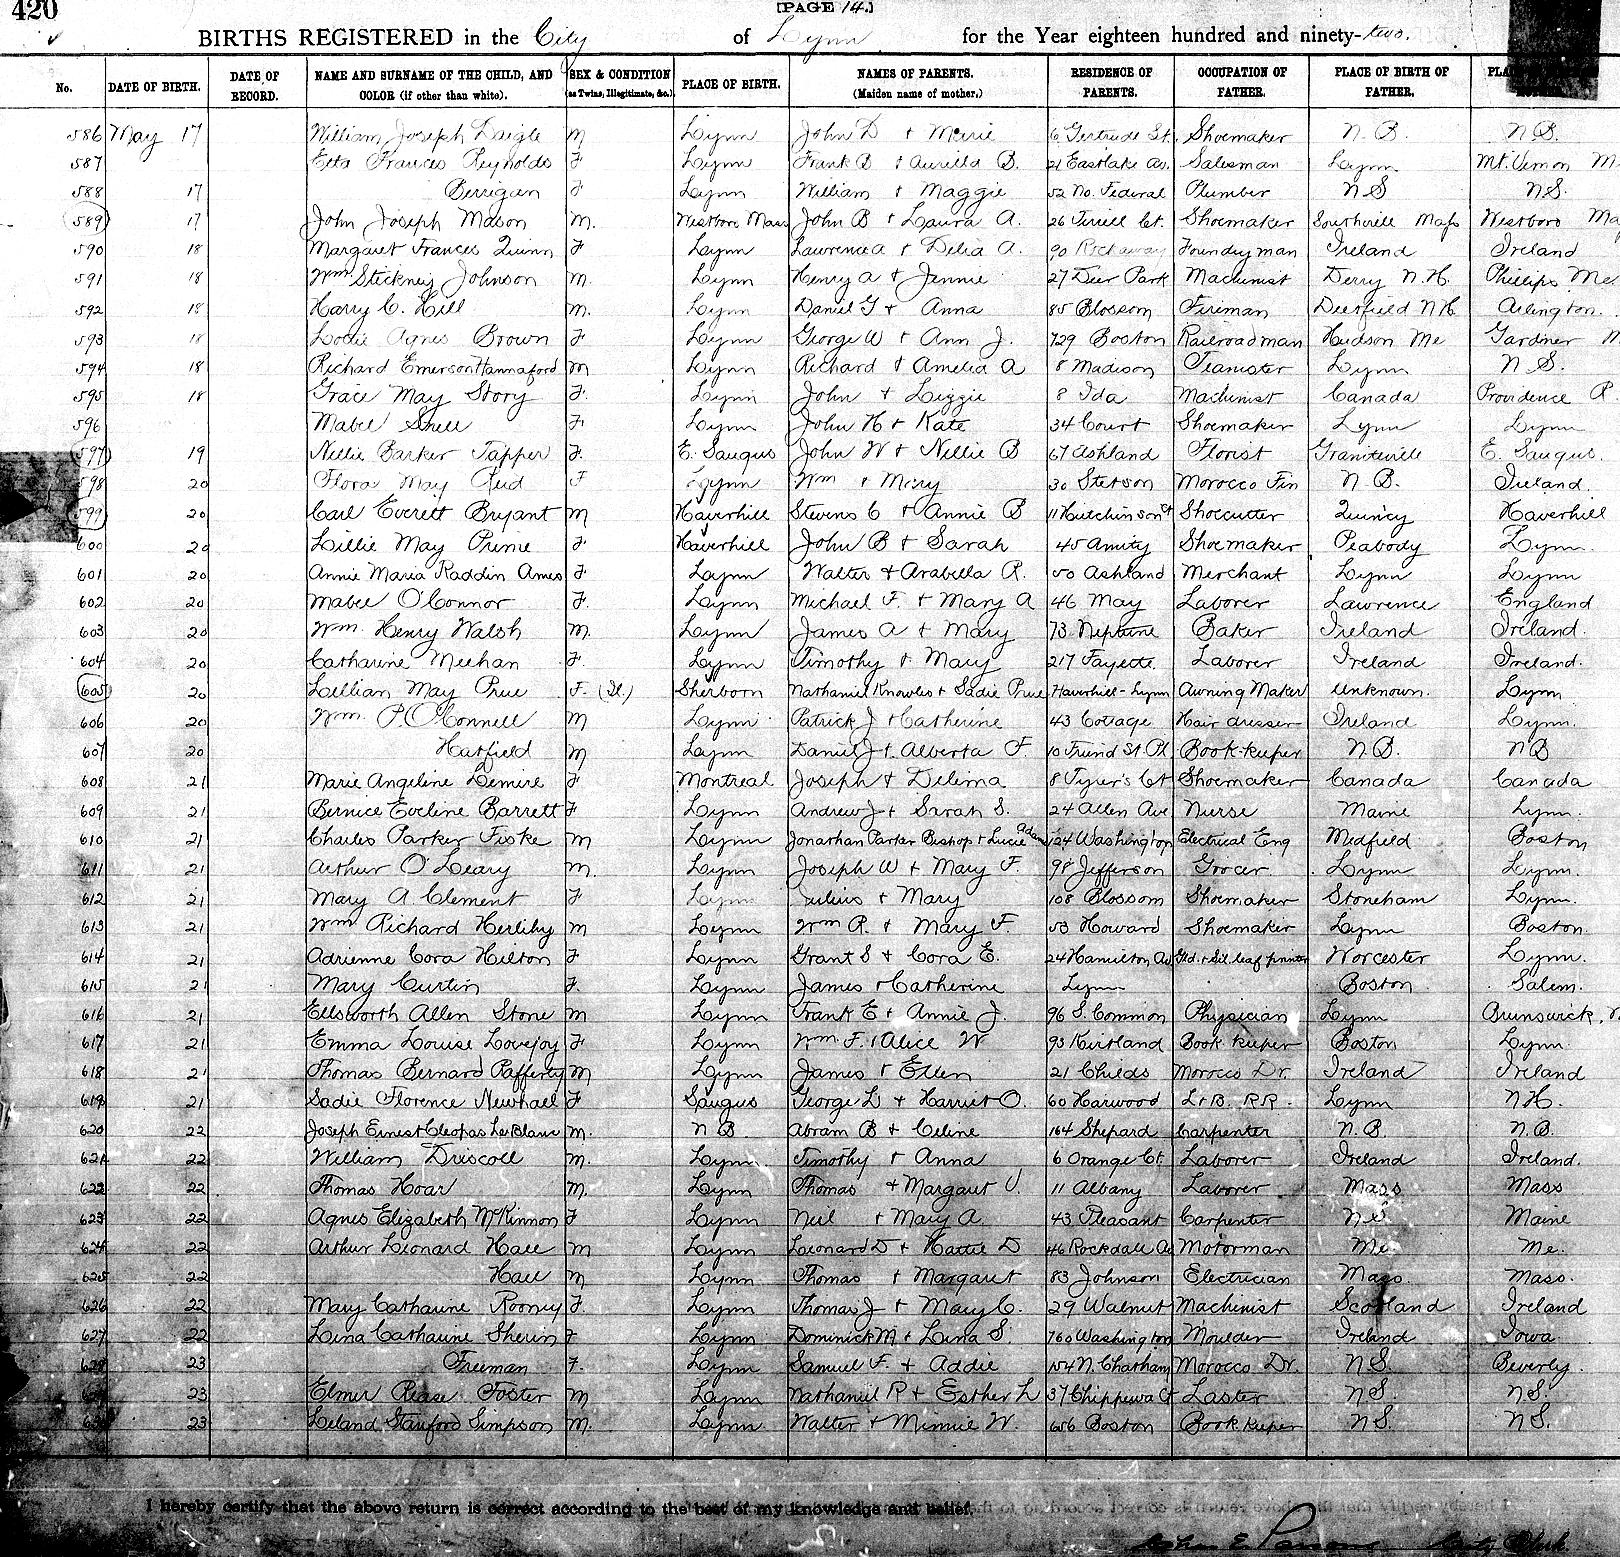 420
[PAGE 14.]
BIRTHS REGISTERED in the City of Lynn for the Year eighteen hundred and ninety-two.
No. DATE OF BIRTH. DATE OF RECORD. NAME AND SURNAME OF THE CHILD, AND COLOR (if other than white). SEX & CONDITION (as Twins, Illegitimate, &c.) PLACE OF BIRTH. NAMES OF PARENTS. (Maiden name of mother.) RESIDENCE OF PARENTS. OCCUPATION OF FATHER. PLACE OF BIRTH OF FATHER.
586 May 17 William Joseph Daigle M Lynn John D + Marie 6 Gertrude St. Shoemaker N. B. N B.
587 Etta Frances Reynolds F Lynn Frank B + Aurilla B. 21 Eastlake av. Salesman Lynn Mt. Vernon M
588 17 Berrigan F Lynn William + Maggie 52 No. Federal Plumber N S N. S.
589 17 John Joseph Mason M. Westboro Mass John B + Laura A. 26 Tirrell Ct. Shoemaker Southville Mass Westboro Ma
590 18 Margaret Frances Quinn F Lynn Lawrence A + Delia A. 90 Rockaway Foundryman Ireland Ireland
591 18 Wm Stickney Johnson M. Lynn Henry A + Jennie 27 Deer Park Machinist Derry N. H. Phillips Me.
592 18 Harry C. Hill M. Lynn Daniel G + Anna 85 Blossom Fireman Deerfield N H. Arlington.
593 18 Lottie Agnes Brown F Lynn George W + Ann J. 729 Boston Railroad man Hudson Me Gardner M
594 18 Richard Emerson Hannaford M Lynn Richard + Amelia A 8 Madison Teamster Lynn N S.
595 18 Grace May Story F. Lynn John + Lizzie 8 Ida Machinist Canada Providence R.
596 Mabel Snell F. Lynn John H + Kate 34 Court Shoemaker Lynn Lynn
597 19 Nellie Barker Tapper F. E. Saugus John W + Nellie B 67 Ashland Florist Graniteville E. Saugus.
598 20 Flora May Reid F Lynn Wm + Mary 30 Stetson Morocco Fin N. B. Ireland.
599 20 Carl Everett Bryant M Haverhill Stevens C + Annie B 11 Hutchinson Ct Shoecutter Quincy Haverhill
600 20 Lillie May Prime F Haverhill John B + Sarah 45 Amity Shoemaker Peabody Lynn.
601 20 Annie Maria Raddin Ames F Lynn Walter + Arabella R. 50 Ashland Merchant Lynn Lynn
602 20 Mabel O'Connor F. Lynn Michael F. + Mary A 46 May Laborer Lawrence England
603 20 Wm. Henry Walsh M. Lynn James A + Mary 73 Neptune Baker Ireland Ireland.
604 20 Catharine Meehan F. Lynn Timothy + Mary 217 Fayette Laborer Ireland Ireland.
605 20 Lillian May Prue F. (Il.) Sherborn Nathaniel Knowles + Sadie Prue Haverhill-Lynn Awning Maker Unknown. Lynn
606 20 Wm. P. O'Connell M Lynn Patrick J + Catherine 43 Cottage Hair dresser Ireland Lynn.
607 20 Hatfield M Lynn Daniel J + Alberta F. 10 Friend St. Pl Book-keeper N. B. N B
608 21 Marie Angeline Lemire F Montreal Joseph + Delima 8 Tyler's Ct Shoemaker Canada Canada
609 21 Bernice Eveline Barrett F Lynn Andrew J + Sarah S. 24 Allen Ave Nurse Maine Lynn.
610 21 Charles Parker Fiske M Lynn Jonathan Parker Bishop + Lucie Adams 124 Washington Electrical Eng Medfield Boston
611 21 Arthur O'Leary M. Lynn Joseph W + Mary F. 98 Jefferson Grocer Lynn Lynn.
612 21 Mary A. Clement F Lynn Julius + Mary 108 Blossom Shoemaker Stoneham Lynn.
613 21 Wm Richard Herlihy M Lynn Wm R. + Mary F. 53 Howard Shoemaker Lynn Boston.
614 21 Adrienne Cora Hilton F Lynn Grant S + Cora E. 24 Hamilton Av Gld. + Sil. leaf printer Worcester Lynn.
615 21 Mary Curtin F. Lynn James + Catherine Lynn Boston Salem.
616 21 Ellsworth Allen Stone M Lynn Frank E + Annie J. 96 S. Common Physician Lynn Brunswick,
617 21 Emma Louise Lovejoy F Lynn Wm. F. + Alice W 93 Kirtland Book keeper Boston Lynn.
618 21 Thomas Bernard Rafferty M Lynn James + Ellen 21 Childs Morocco Dr. Ireland Ireland
619 21 Sadie Florence Newhall F Saugus George L + Harriet O. 60 Harwood L + B. RR. Lynn N H.
620 22 Joseph Ernest Cleopas LeBlanc M. N B. Abram B + Celine 164 Shepard Carpenter N. B. N. B.
621 22 William Driscoll M. Lynn Timothy + Anna 6 Orange Ct. Laborer Ireland Ireland.
622 22 Thomas Hoar M. Lynn Thomas + Margaret V. 11 Albany Laborer Mass Mass
623 22 Agnes Elizabeth McKinnon F Lynn Neil + Mary A. 43 Pleasant Carpenter Maine
624 22 Arthur Leonard Hall M Lynn Leonard D + Hattie D 46 Rockdale Av Motorman Me. Me.
625 22 Hall M Lynn Thomas + Margaret 83 Johnson Electrician Mass. Mass.
626 22 Mary Catharine Rooney F. Lynn Thomas J + Mary C. 29 Walnut Machinist Scotland Ireland
627 22 Lina Catharine Sherin F Lynn Dominick M + Lina S. 760 Washington Moulder Ireland Iowa
628 23 Freeman F. Lynn Samuel F. + Addie 154 N. Chatham Morocco Dr. N S. Beverly.
23 Elmer Rease Foster M Lynn Nathaniel R + Esther L 37 Chippewa Ct Laster N S. N S.
23 Leland Stanford Simpson M. Lynn Walter + Minnie W. 656 Boston Book keeper N S. N S.
I hereby certify that the above return is correct according to the best of my knowledge and belief.
E Parsons City Clerk.